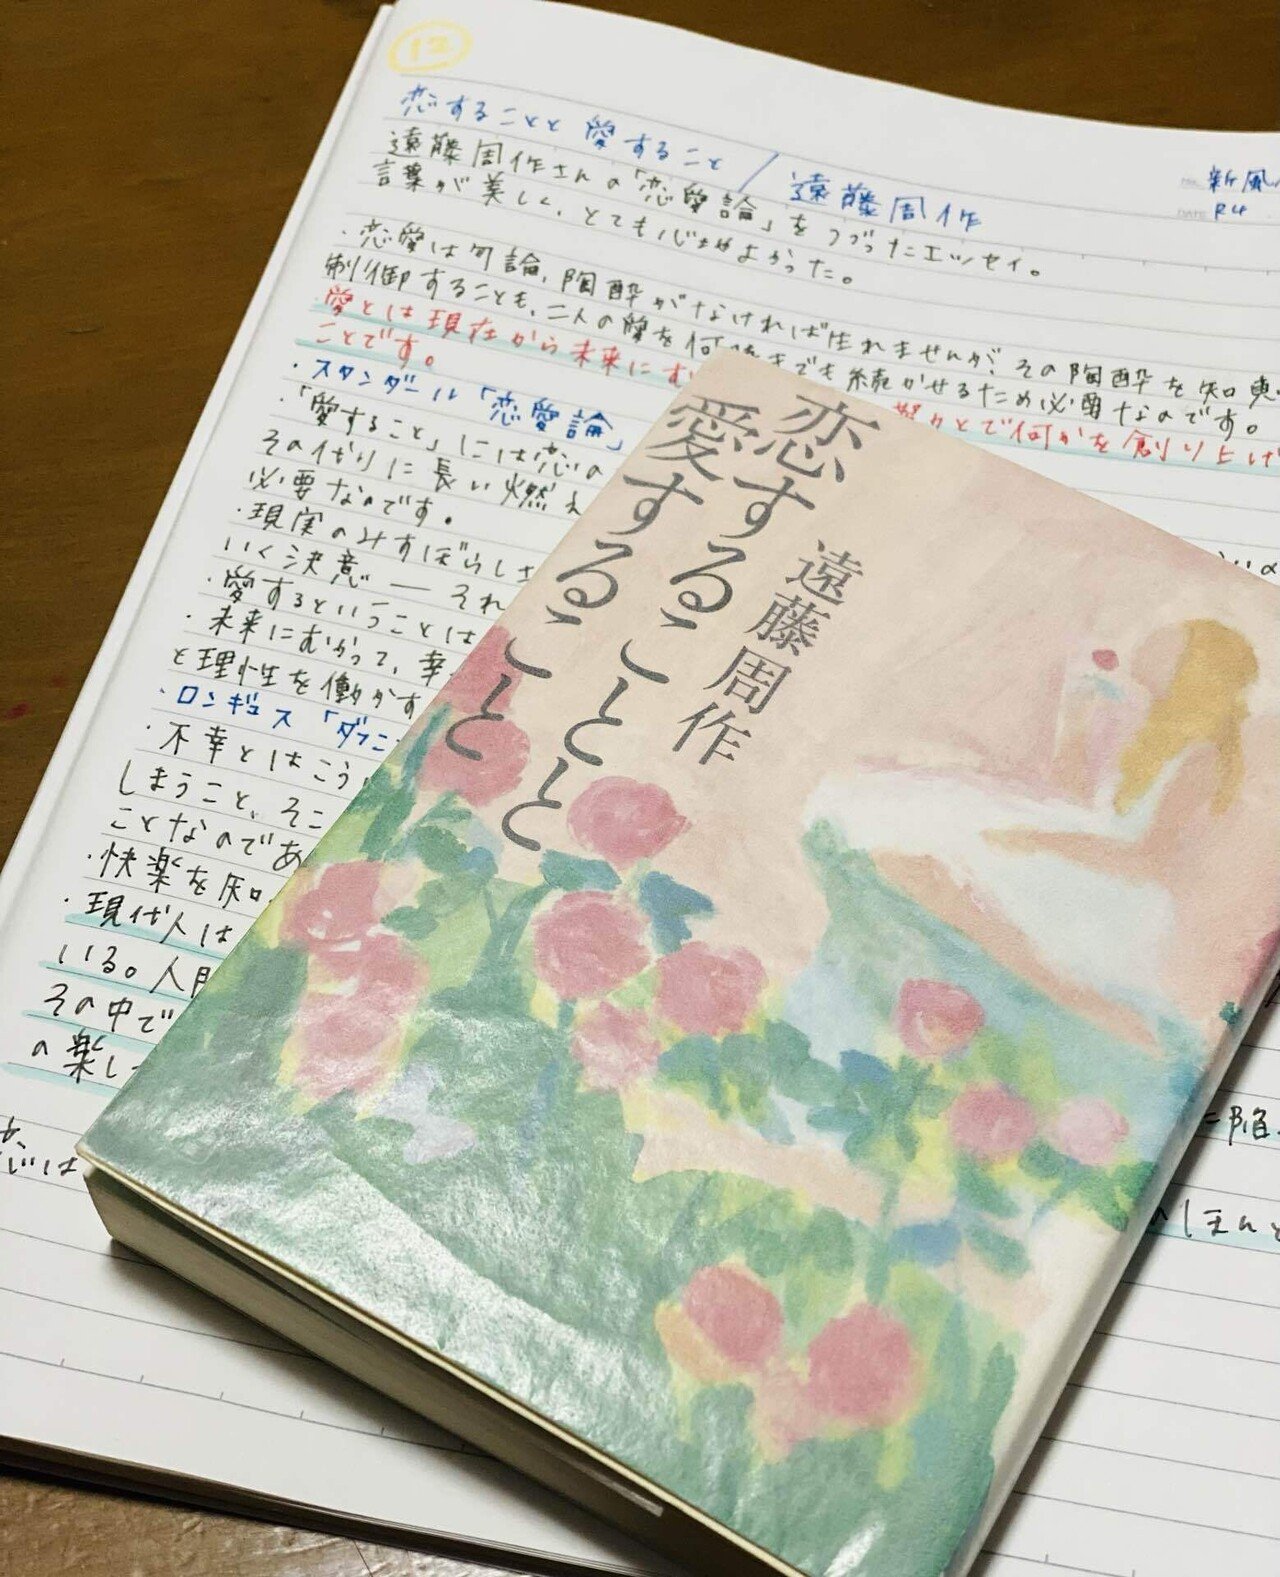 12
恋することと愛すること/遠藤周作
新風
R4
遠藤周作さんの「恋愛論」をつづったエッセイ。
言葉が美しく、とても心地よかった。
・恋愛は勿論、陶酔がなければ生れませんが、その陶酔を知恵
制御することも、二人の愛を何時までも続かせるため必要なのです。
愛とは現在から未来にむ 努力とで何かを創り上げ
ことです。
・スタンダール「恋愛論」
・「愛すること」には恋の
その代りに長い燃え
必要なのです。
・現実のみすぼらしさ
いく決意―それ
・愛するということは
・未来にむかって、幸
と理性を働かす
・ロンギュス「ダフニ
・不幸とはこう
しまうこと、そこ
ことなのであ
・快楽を知
・現代人は
いる。人間
その中で
の楽し
恋は
に陥
ほんと
恋することと
愛すること
遠藤周作